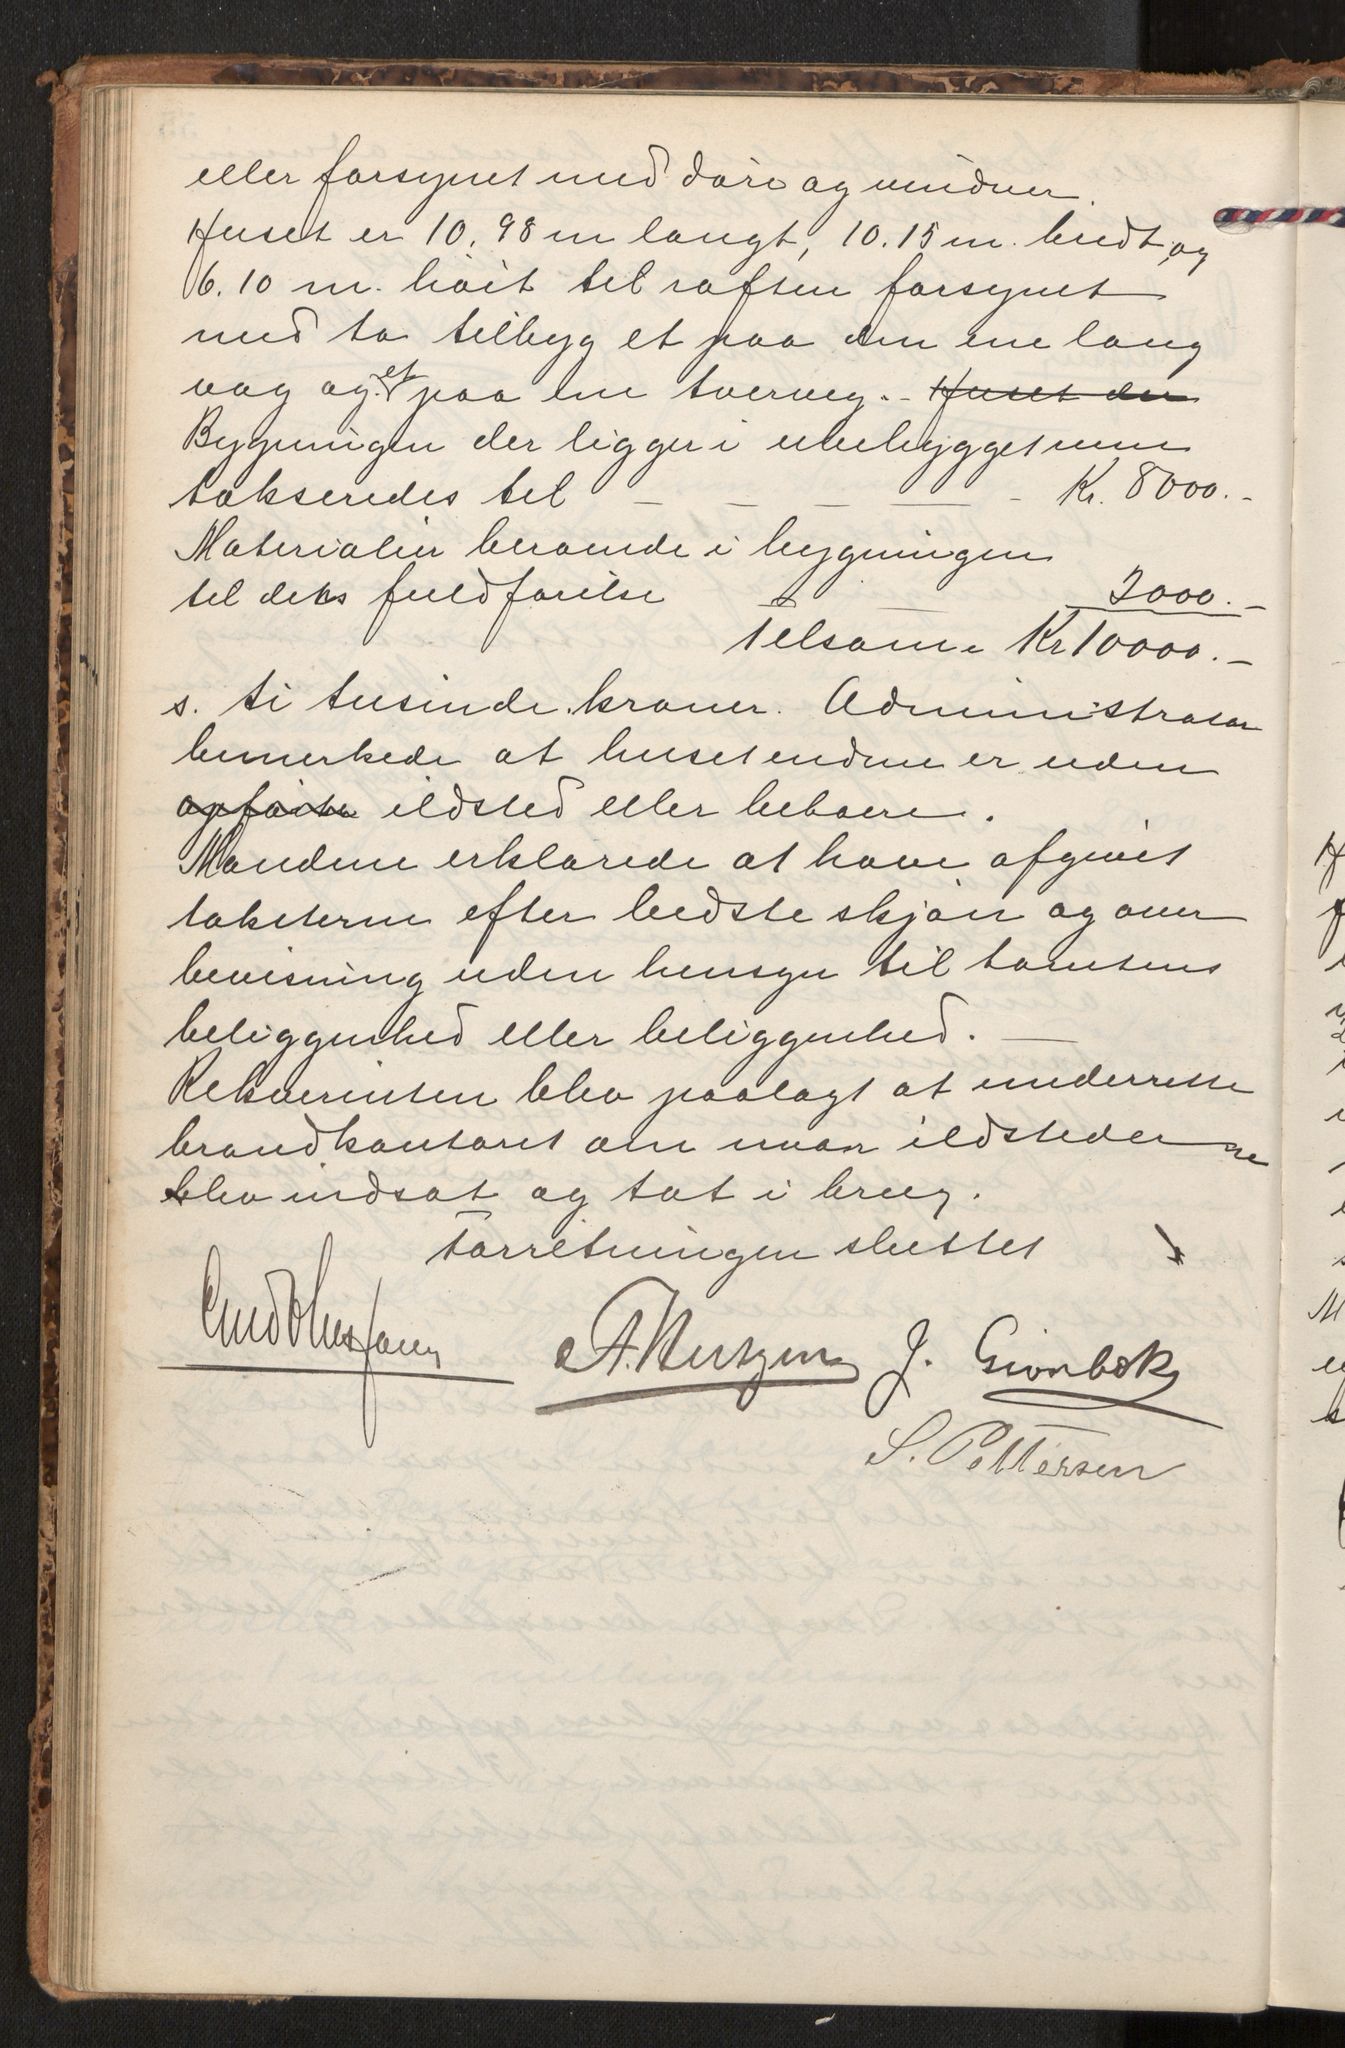 eller forsynet med döre og vinduer.
Huset er 10,98 m langt, 10.15 m. bredt, og
6.10 m. höit til raften forsynet
med to tilbyg et paa den ene lang
væg og et paa en tverveg. - Huset der
Bygningen der ligger i ubebygget
takseredes til — — — — - Kr. 8000.-
Materialier beroende i bygningen
til dets fuldförelse — — 2000.-
Tilsam. Kr 10000.-
s. ti tusinde kroner. Administrator
bemerkede at huset endnu er uden
opförte ildsted eller beboere.
Mændene erklærede at have afgivet
taksterne efter bedste skjön og over
bevisning uden hensyn til tomtens
beliggenhed eller beliggenhed. —
Rekvirenten blev paalagt at underrette
brandkontoret om naar ildstederne
blev indsat og tat i brug.
Forretningen sluttet
J.
S. Pettersen